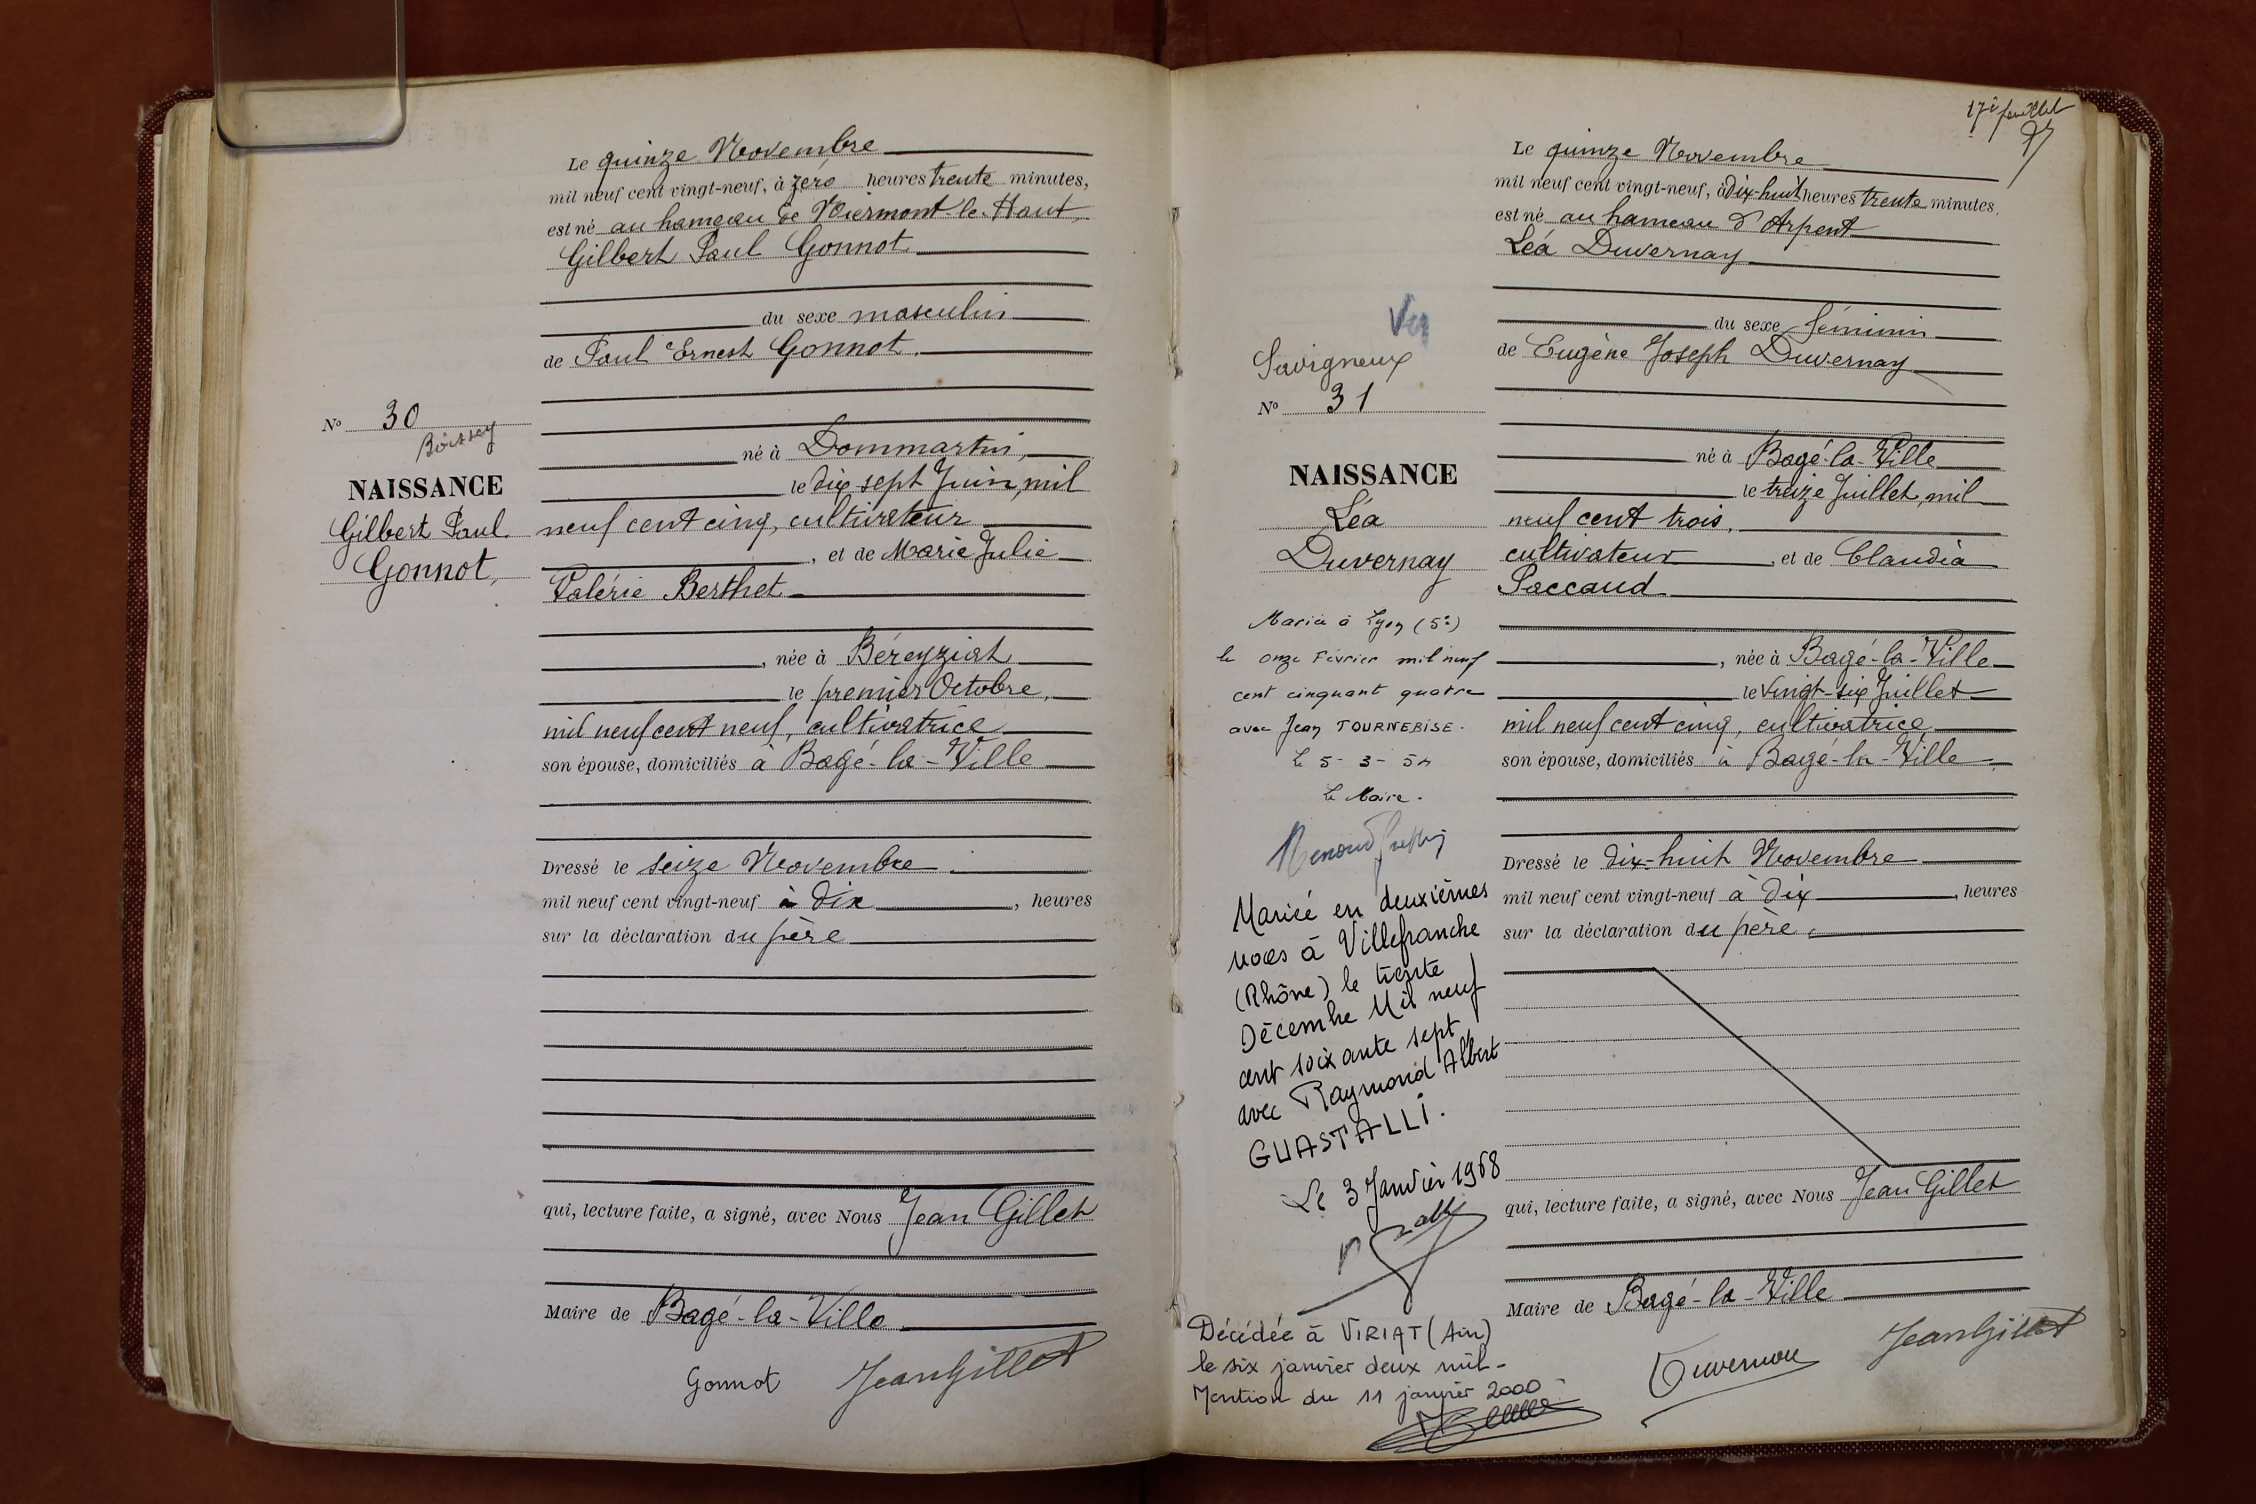 Le quinze Novembre
mil neuf cent vingt-neuf, à zéro heures trente minutes,
est né au hameau de Voiermont-le-Haut,
Gilbert Paul Gonnot
du sexe masculin
de Paul Ernest Gonnot.
né à Dommartin,
le dix sept Juin, mil
neuf cent cinq, cultivateur
, et de Marie Julie
Valérie Berthet
, née à Béreyziat
le premier Octobre,
mil neuf cent neuf, cultivatrice
son épouse, domiciliés à Bagé-la-Ville
Dressé le seize Novembre
mil neuf cent vingt-neuf à dix, heures
sur la déclaration du père
qui, lecture faite, a signé, avec Nous Jean Gillet
Maire de Bagé-la-Ville
Gonnot Jean Gillet
No 30
Boissey
NAISSANCE
Gilbert Paul
Gonnot,
17e feuillet
Le quinze Novembre
mil neuf cent vingt-neuf, à dix-huit heures trente minutes,
est né au hameau d'Arpent
Léa Duvernay
du sexe féminin
de Eugène Joseph Duvernay
né à Bagé-la-Ville
le treize Juillet, mil
neuf cent trois,
cultivateur, et de Claudia
Paccaud
, née à Bagé-la-Ville
le vingt-six Juillet
mil neuf cent cinq, cultivatrice
son épouse, domiciliés à Bagé-la-Ville
Dressé le dix-huit Novembre
mil neuf cent vingt-neuf à dix, heures
sur la déclaration du père.
qui, lecture faite, a signé, avec Nous Jean Gillet
Maire de Bagé-la-Ville
Duvernay Jean Gillet
Vu
Savigneux
No 31
NAISSANCE
Léa
Duvernay
Mariée à Lyon (5e)
le onze Février mil neuf
cent cinquant quatre
avec Jean TOURNEBISE.
Le 5-3-54
Le Maire.
Mariée en deuxièmes
noces à Villefranche
(Rhône) le trente
Décembre Mil neuf
cent soixante sept
avec Raymond Albert
GUASTALLI.
Le 3 Janvier 1968
Décédée à VIRIAT (Ain)
le six janvier deux mil-
Mention du 11 janvier 2000